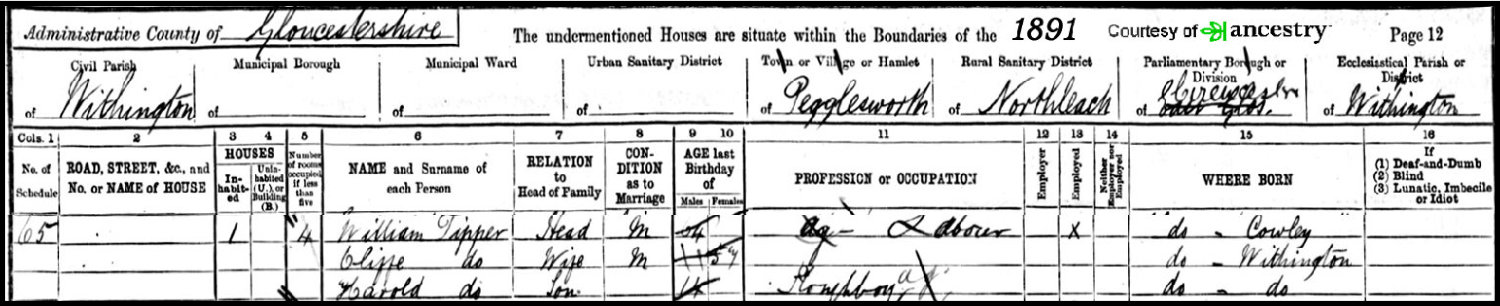 Administrative County of Gloucestershire The undermentioned Houses are situate within the Boundaries of the 1891 Courtesy of ancestry Page 12
Civil Parish Municipal Borough Municipal Ward Urban Sanitary District Town or Village or Hamlet Rural Sanitary District Parliamentary Borough or Division Ecclesiastical Parish or District
of Withington of of of of Pegglesworth of Northleach of Cirencester of Withington
Cols. 1 2 3 4 5 6 7 8 9 10 11 12 13 14 15 16
No. of Schedule ROAD, STREET, &c., and No. or NAME of HOUSE HOUSES Inhabited Uninhabited (U.), or Building (B.) Number of rooms occupied if less than five NAME and Surname of each Person RELATION to Head of Family CONDITION as to Marriage AGE last Birthday of Males Females PROFESSION or OCCUPATION Employer Employed Neither Employer nor Employed WHERE BORN If (1) Deaf-and-Dumb (2) Blind (3) Lunatic, Imbecile or Idiot
65 1 4 William Tipper Head M Ag Labourer X do Cowley
do Wife M 57 do Withington
Harold do Son 14 Ploughboy ag do do